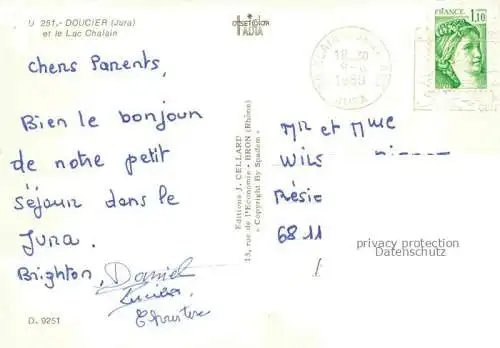 U 251.- DOUCIER (Jura)
et le Lac Chalain
chers Parents,
Bien le bonjour
de notre petit
séjour dans le
Jura.
Brighton, Daniel
Lucien
D. 9251
Editions J. CELLARD
13, rue de l'Economie - BRON (Rhône)
« Copyright By Spadem »
FRANCE
1,10
1980
JURA
Mr et Mme
WILS
Résid
6811
privacy protection
Datenschutz